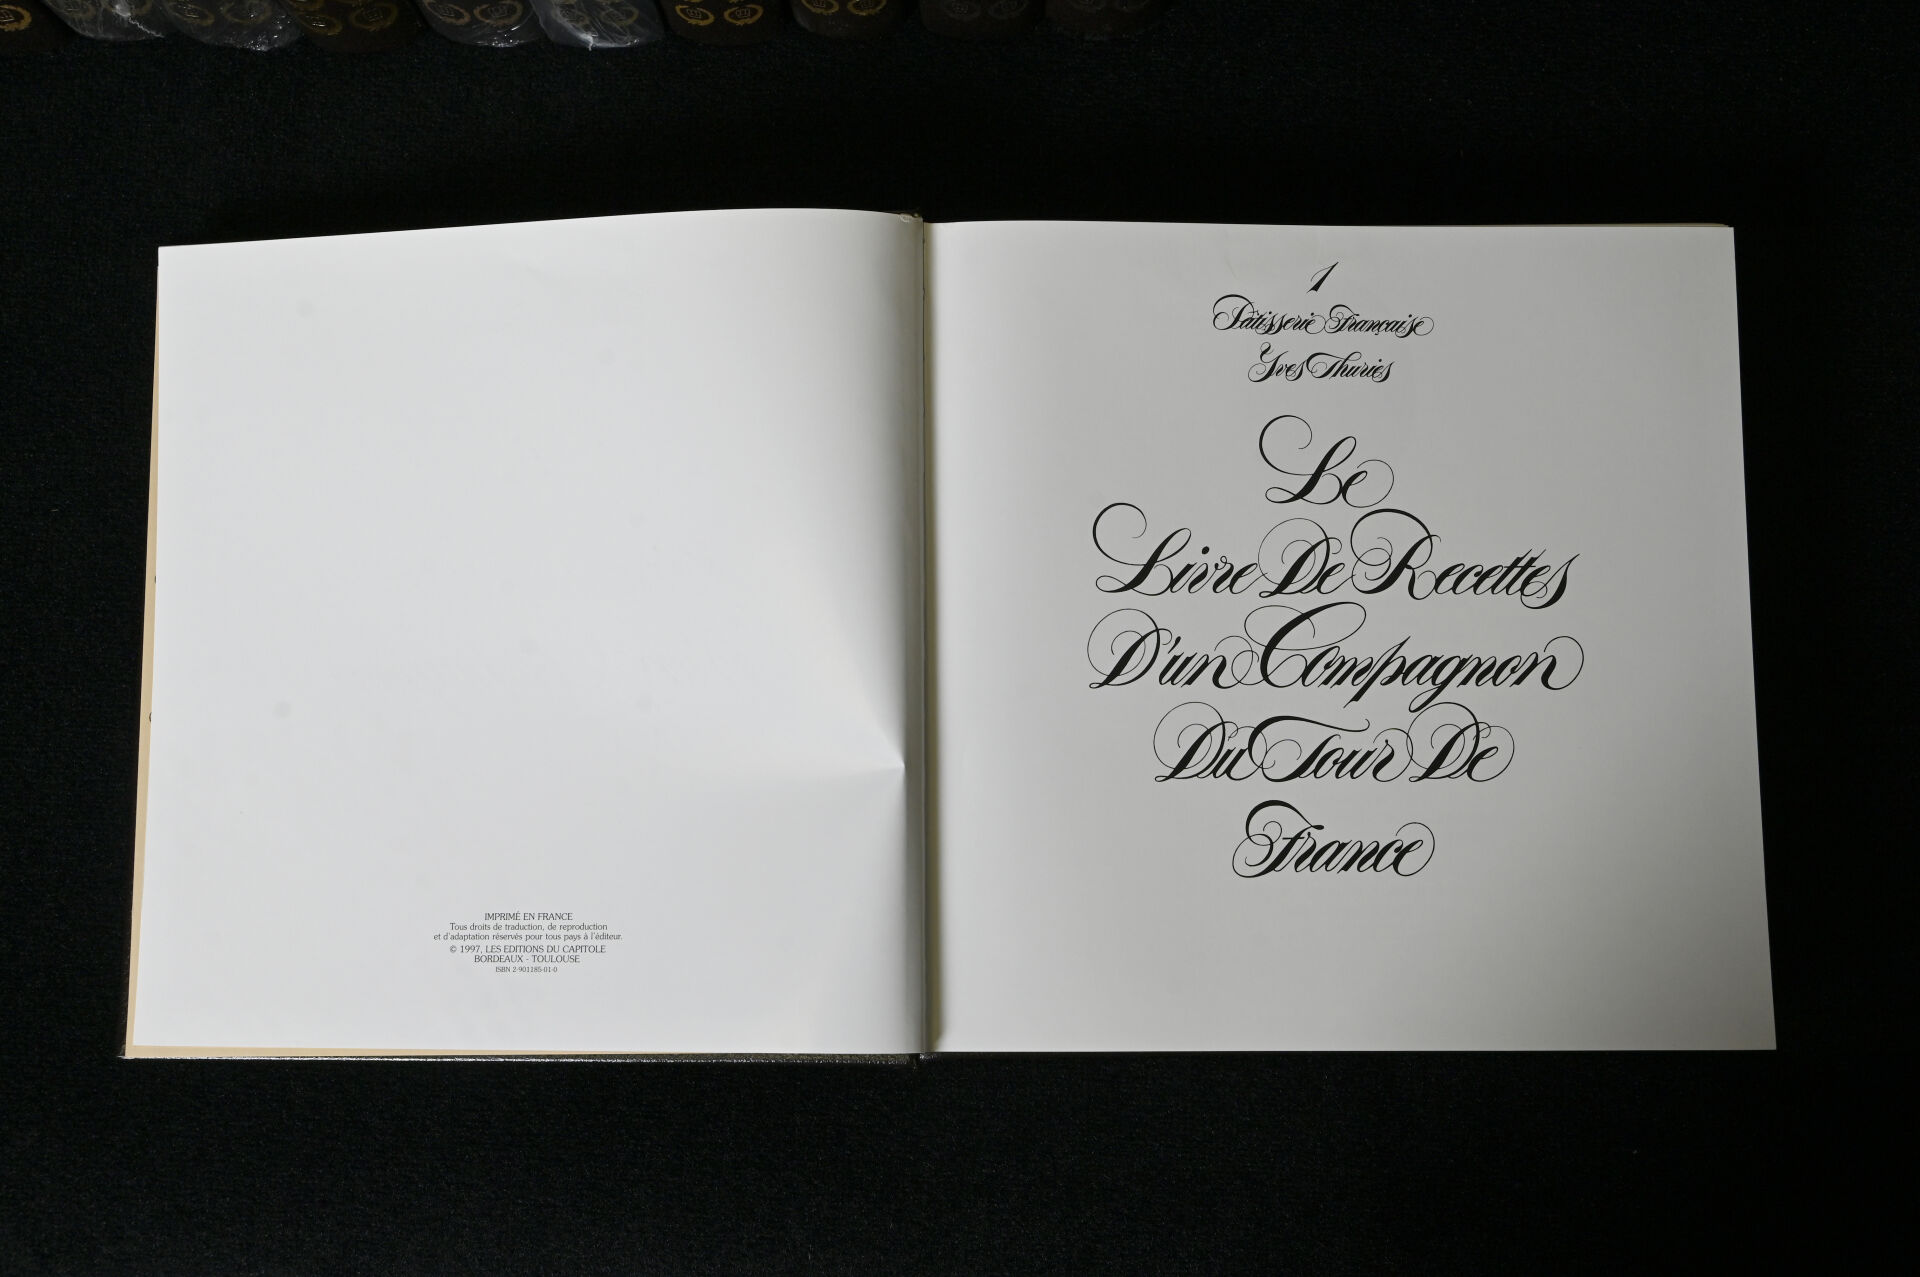 IMPRIMÉ EN FRANCE
Tous droits de traduction, de reproduction
et d'adaptation réservés pour tous pays à l'éditeur.
© 1997, LES EDITIONS DU CAPITOLE
BORDEAUX - TOULOUSE
ISBN 2-901185-01-0
1
Pâtisserie Française
Yves Thuriès
Le
Livre De Recettes
D'un Compagnon
Du Tour De
France